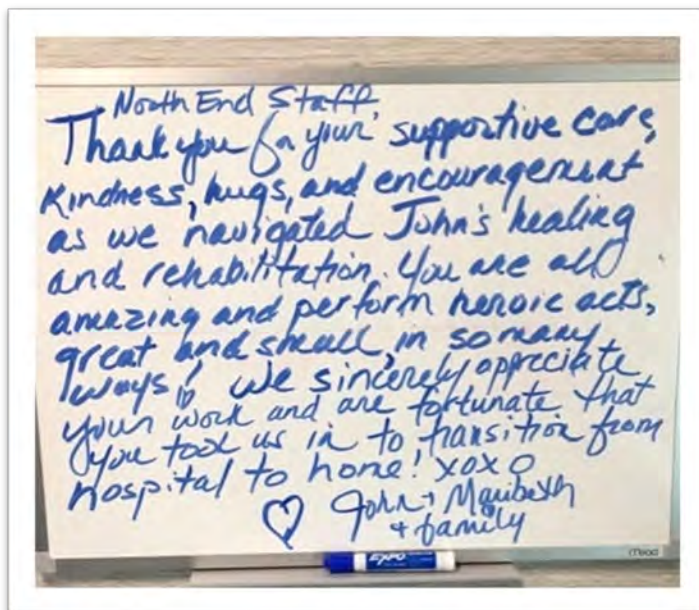 North End Staff,
Thank you for your supportive care,
kindness, hugs, and encouragement
as we navigated John's healing
and rehabilitation. You are all
amazing and perform heroic acts,
great and small, in so many
ways! We sincerely appreciate
your work and are fortunate that
you took us in to transition from
hospital to home! xoxo
♡ John + Maribeth
+ family
EXPO
Mead